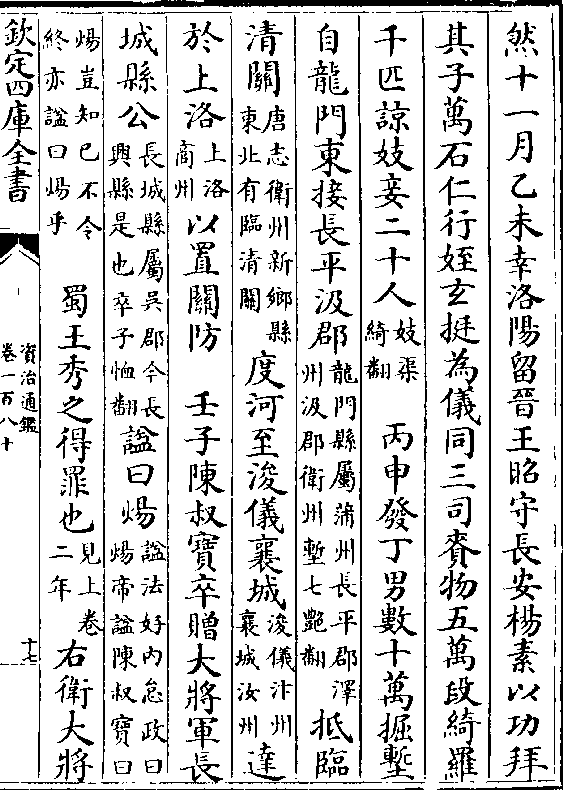 然十一月乙未幸洛陽留晉王昭守長安楊素以功拜
其子萬石仁行姪玄挺為儀同三司賚物五萬段綺羅
千匹諒妓妾二十人妓渠綺翻 丙申發丁男數十萬掘塹
自龍門東接長平汲郡龍門縣屬蒲州長平郡澤州汲郡衛州塹七艷翻抵臨
清關唐志衛州新鄉縣東北有臨清關度河至浚儀襄城浚儀汴州襄城汝州達
於上洛上洛商州以置關防 壬子陳叔寶卒贈大將軍長
城縣公長城縣屬吳郡今長興縣是也卒子恤翻諡曰煬諡法好內怠政曰煬帝諡陳叔寶曰
煬豈知己不令終亦諡曰煬乎 蜀王秀之得罪也見上卷二年右衛大將
欽定四庫全書
資治通鑑
卷一百八十
十七